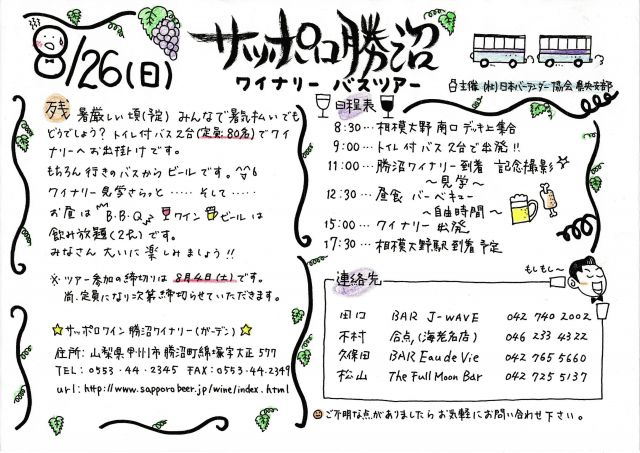 8/26(日)
サッポロ勝沼
ワイナリー バスツアー
主催 (社)日本バーテンダー協会 県央支部
残暑厳しい頃(予定) みんなで暑気払いでも
どうでしょう? トイレ付バス2台(定員80名)でワイ
ナリーへお出掛けです。
もちろん行きのバスからビールです。
ワイナリー見学さらっと …… そして ……
お昼は B.B.Q ワイン ビールは
飲み放題(2h)です。
みなさん大いに楽しみましょう!!
※ツアー参加の締切りは 8月4日(土)です。
尚、定員になり次第締切らせていただきます。
☆サッポロワイン 勝沼ワイナリー(ガーデン)☆
住所: 山梨県甲州市勝沼町綿塚字大正577
TEL: 0553-44-2345 FAX: 0553-44-2349
url: http://www.sapporobeer.jp/wine/index.html
日程表
8:30 … 相模大野 南口 デッキ上集合
9:00 … トイレ付バス2台で出発!!
11:00 … 勝沼ワイナリー到着 記念撮影☆
～見学～
12:30 … 昼食 バーベキュー
～自由時間～
15:00 … ワイナリー出発
17:30 … 相模大野駅到着予定
連絡先
もしもし～
田口 BAR J-WAVE 042 740 2002
木村 合点,(海老名店) 046 233 4322
久保田 BAR Eau de Vie 042 765 5660
松山 The Full Moon Bar 042 725 5137
ご不明な点がありましたらお気軽にお問い合わせ下さい。